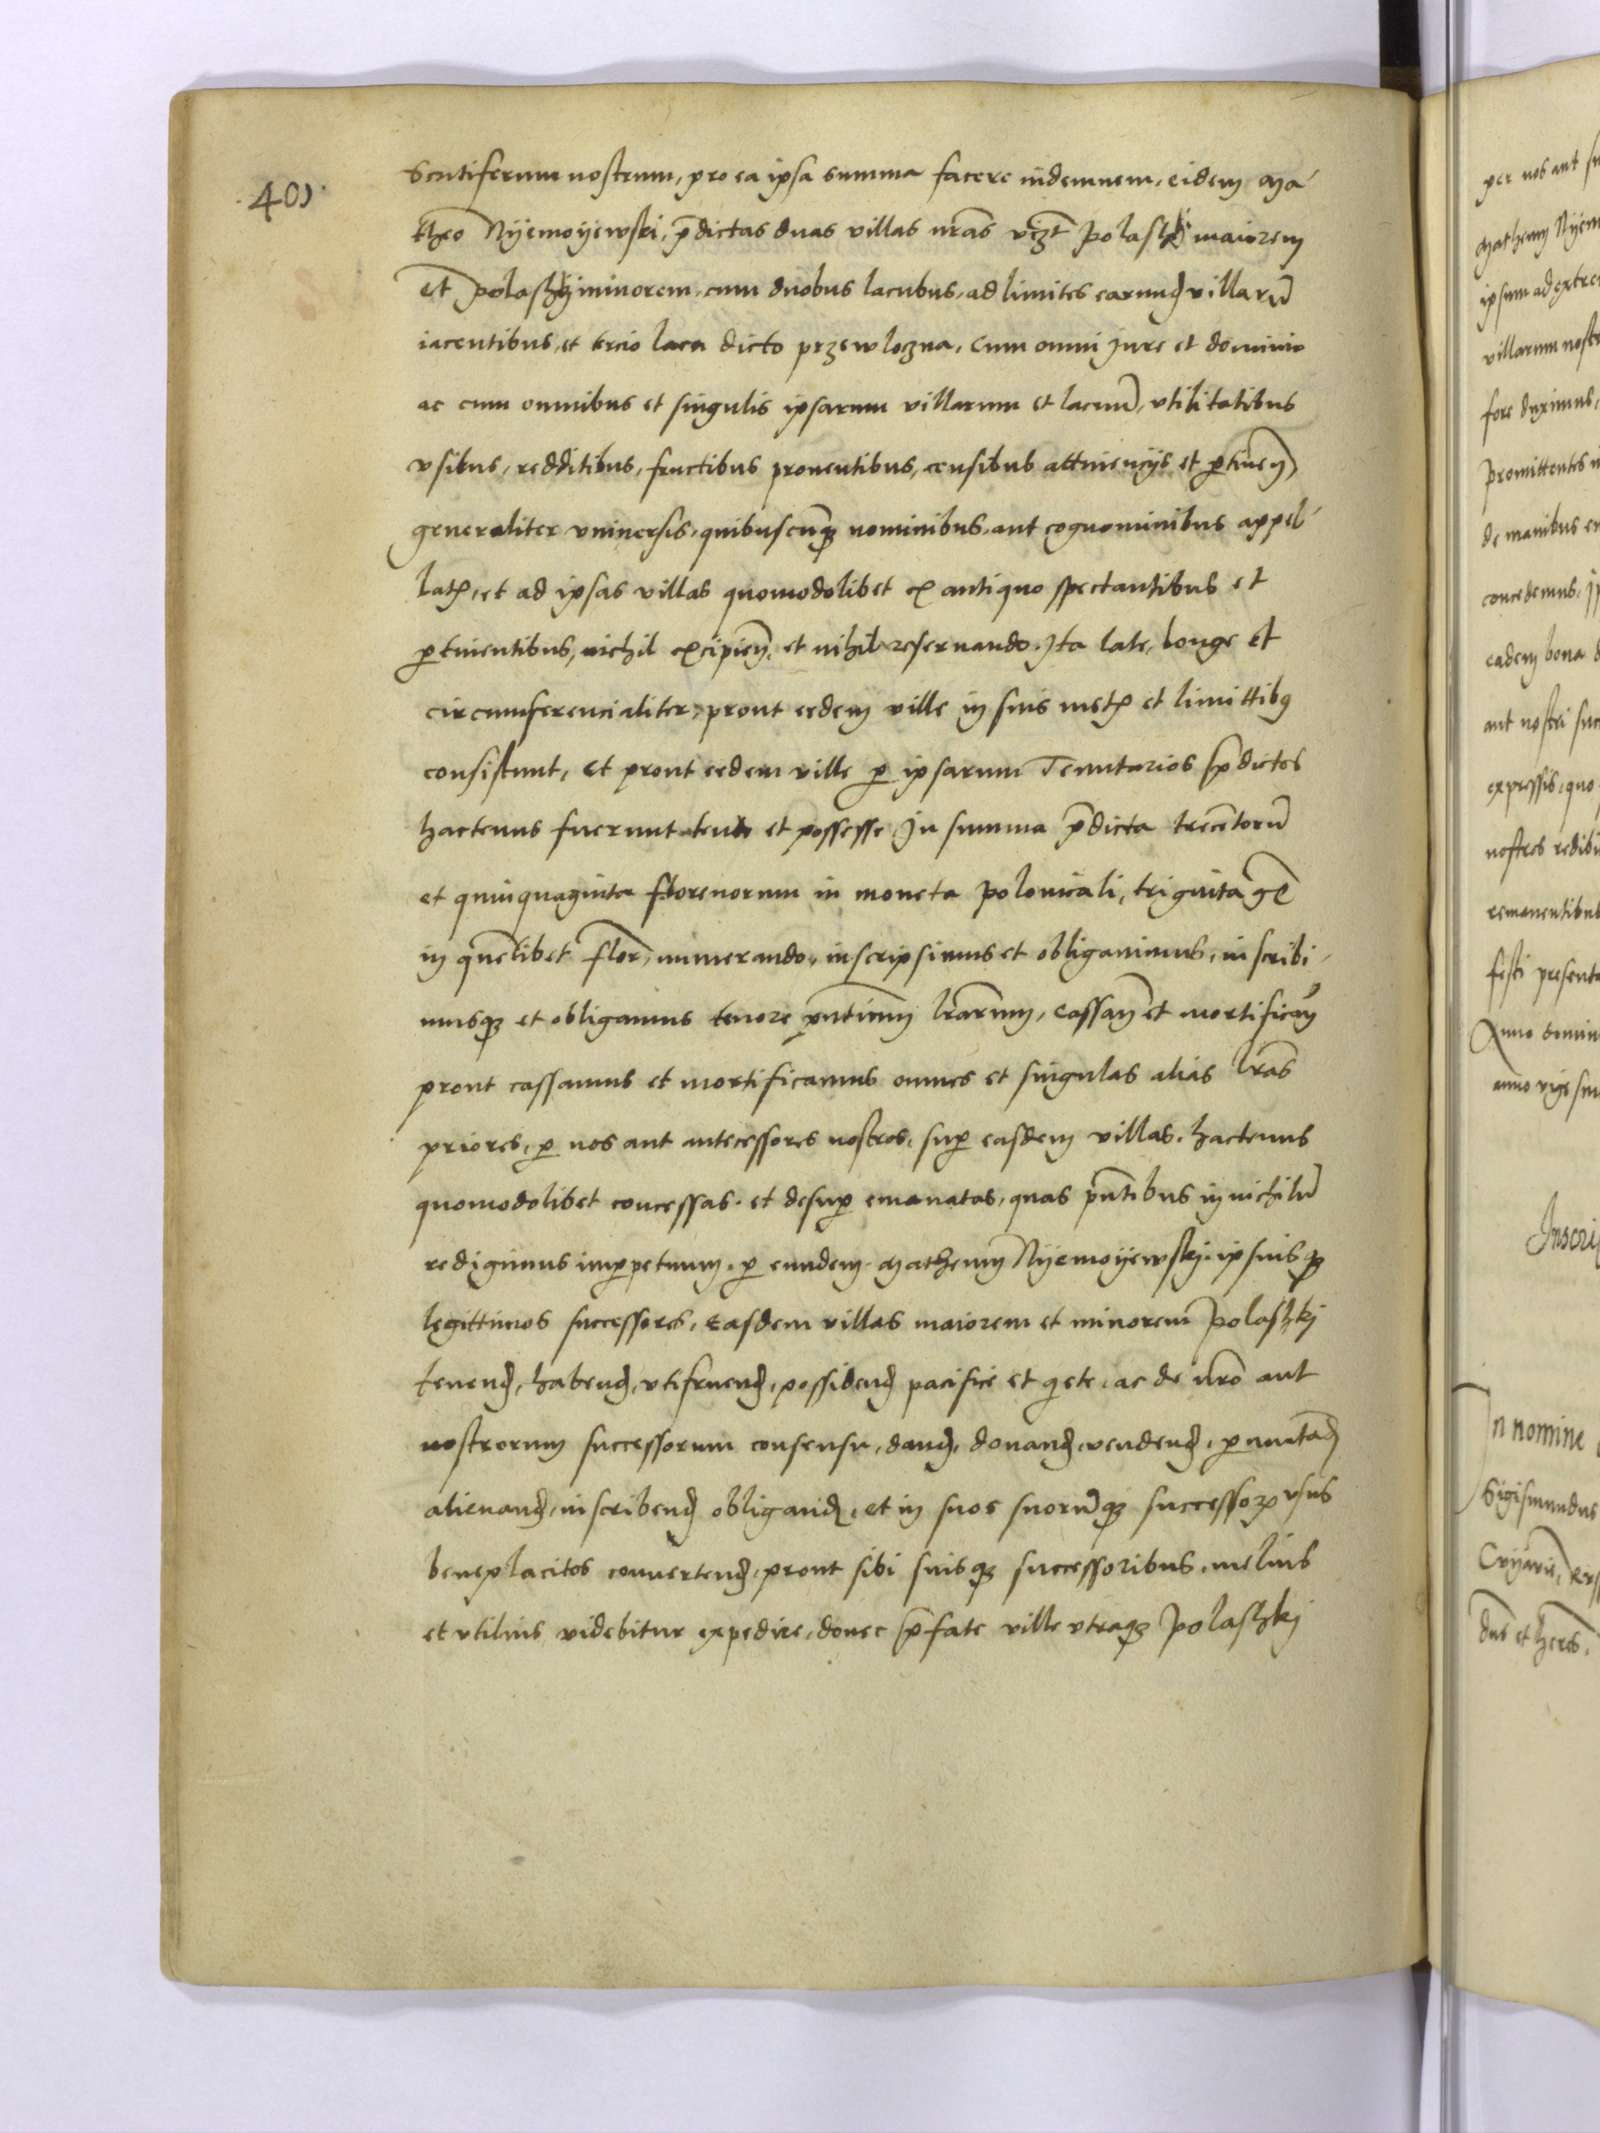 401
Scutiferum nostrum, pro ea ipsa summa facere indemnem, eidem Ma-
theo Nÿemoÿewski, p̄dictas duas villas nr̄as vczt̄ Polaszki maiorem
et Polaszki minorem, cum duobus lacubus, ad limites earund villarū
iacentibus, et tercio lacu dicto przewloczna, Cum omni Jure et dominio
ac cum omnibus et singulis ipsarum villarum et lacuū, vtilitatibus
vsibus, redditibus, fructibus prouentibus, censibus attinencÿs et ꝑtineñ
generaliter vniuersis, quibuscūqꝫ nominibus, aut cognominibus appel-
latꝭ, et ad ipsas villas quomodolibet ex antiquo spectantibus et
ꝑtinentibus, nichil excipieñ, et nihil reseruando. Ita late, longe et
circumferencialiter, prout eedem ville in suis metꝭ et limittibꝰ
consistunt, et prout eedem ville ꝑ ipsarum Tenutarios p̄dictos
hactenus fuerunt tente et possesse In summa p̄dicta trecētorū
et quinquaginta florenorum in moneta polonicali, triginta gr̄
in quēlibet flor̄, numerando, inscripsimus et obligauimus, inscribi-
musqꝫ et obligamus tenore pn̄tium lr̄arum, Cassañ et mortificañ
prout cassamus et mortificamus omnes et singulas alias lr̄as
priores, ꝑ nos aut antecessores nostros, suꝑ easdem villas, hactenus
quomodolibet concessas et desuꝑ emanatas, quas pn̄tibus in nichilū
redigimus imꝑpetuum, ꝑ eundem Matheum Nÿemoÿewski ipsiusqꝫ
legittimos successores, Easdem villas maiorem et minorem Polaszki
tenend, habend, vtifruend, possidend pacifice et qiete, ac de nr̄o aut
nostrorum successorum consensu, dand, donand, vendend, ꝑmutād
alienand, inscribend obligand, et in suos suorūqꝫ successoꝝ vsus
beneplacitos conuertend, prout sibi suisqꝫ successoribus, melius
et vtilius videbitur expedire, donec p̄fate ville vtraqꝫ Polaszki
per nos aut
Matheum
ipsum ad
villarum
fore duximus,
Promittentes
de manibus
concedemus,
eadem bona
aut nostri
expressis, quo
nostros
remanentibus
festi
Anno
anno
In nomine
Sigismundus
dn̄s et heres.